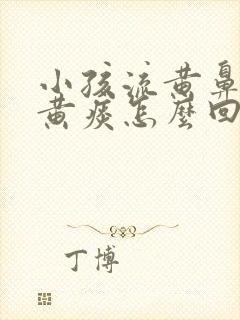 小孩流黄鼻
黄痰怎麼回
丁博